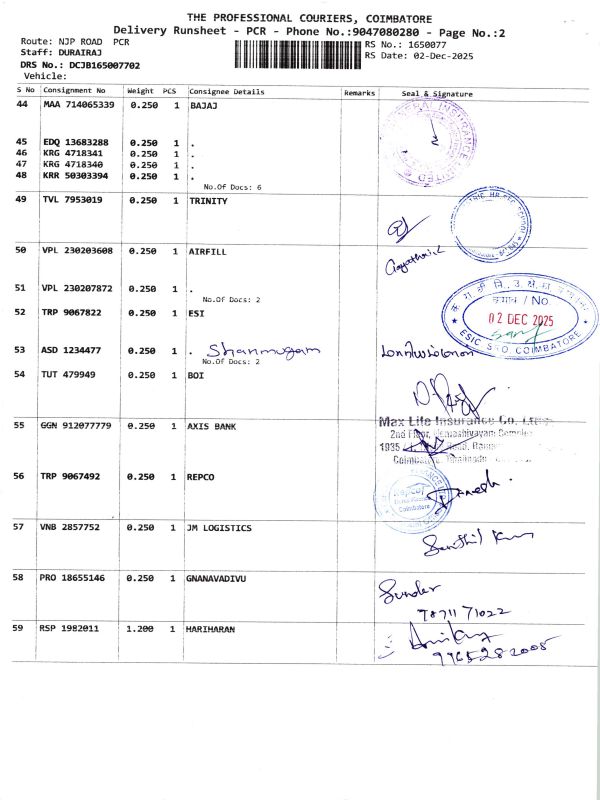 THE PROFESSIONAL COURIERS, COIMBATORE
Delivery Runsheet - PCR - Phone No.:9047080280 - Page No.:2
Route: NJP ROAD PCR
Staff: DURAIRAJ
DRS No.: DCJB165007702
Vehicle:
RS No.: 1650077
RS Date: 02-Dec-2025
S No Consignment No Weight PCS Consignee Details Remarks Seal & Signature
44 MAA 714065339 0.250 1 BAJAJ
45 EDQ 13683288 0.250 1 .
46 KRG 4718341 0.250 1 .
47 KRG 4718340 0.250 1 .
48 KRR 50303394 0.250 1 .
No.Of Docs: 6
49 TVL 7953019 0.250 1 TRINITY
50 VPL 230203608 0.250 1 AIRFILL
51 VPL 230207872 0.250 1 .
No.Of Docs: 2
52 TRP 9067822 0.250 1 ESI
No.
02 DEC 2025
ESIC SRO, COIMBATORE
53 ASD 1234477 0.250 1 . Shanmugam
No.Of Docs: 2
54 TUT 479949 0.250 1 BOI
55 GGN 912077779 0.250 1 AXIS BANK
Max Life Insurance Co. Ltd.
2nd Floor,
56 TRP 9067492 0.250 1 REPCO
Repco
Coimbatore
57 VNB 2857752 0.250 1 JM LOGISTICS
Senthil
58 PRO 18655146 0.250 1 GNANAVADIVU
Sunder
9871171022
59 RSP 1982011 1.200 1 HARIHARAN
9965282005